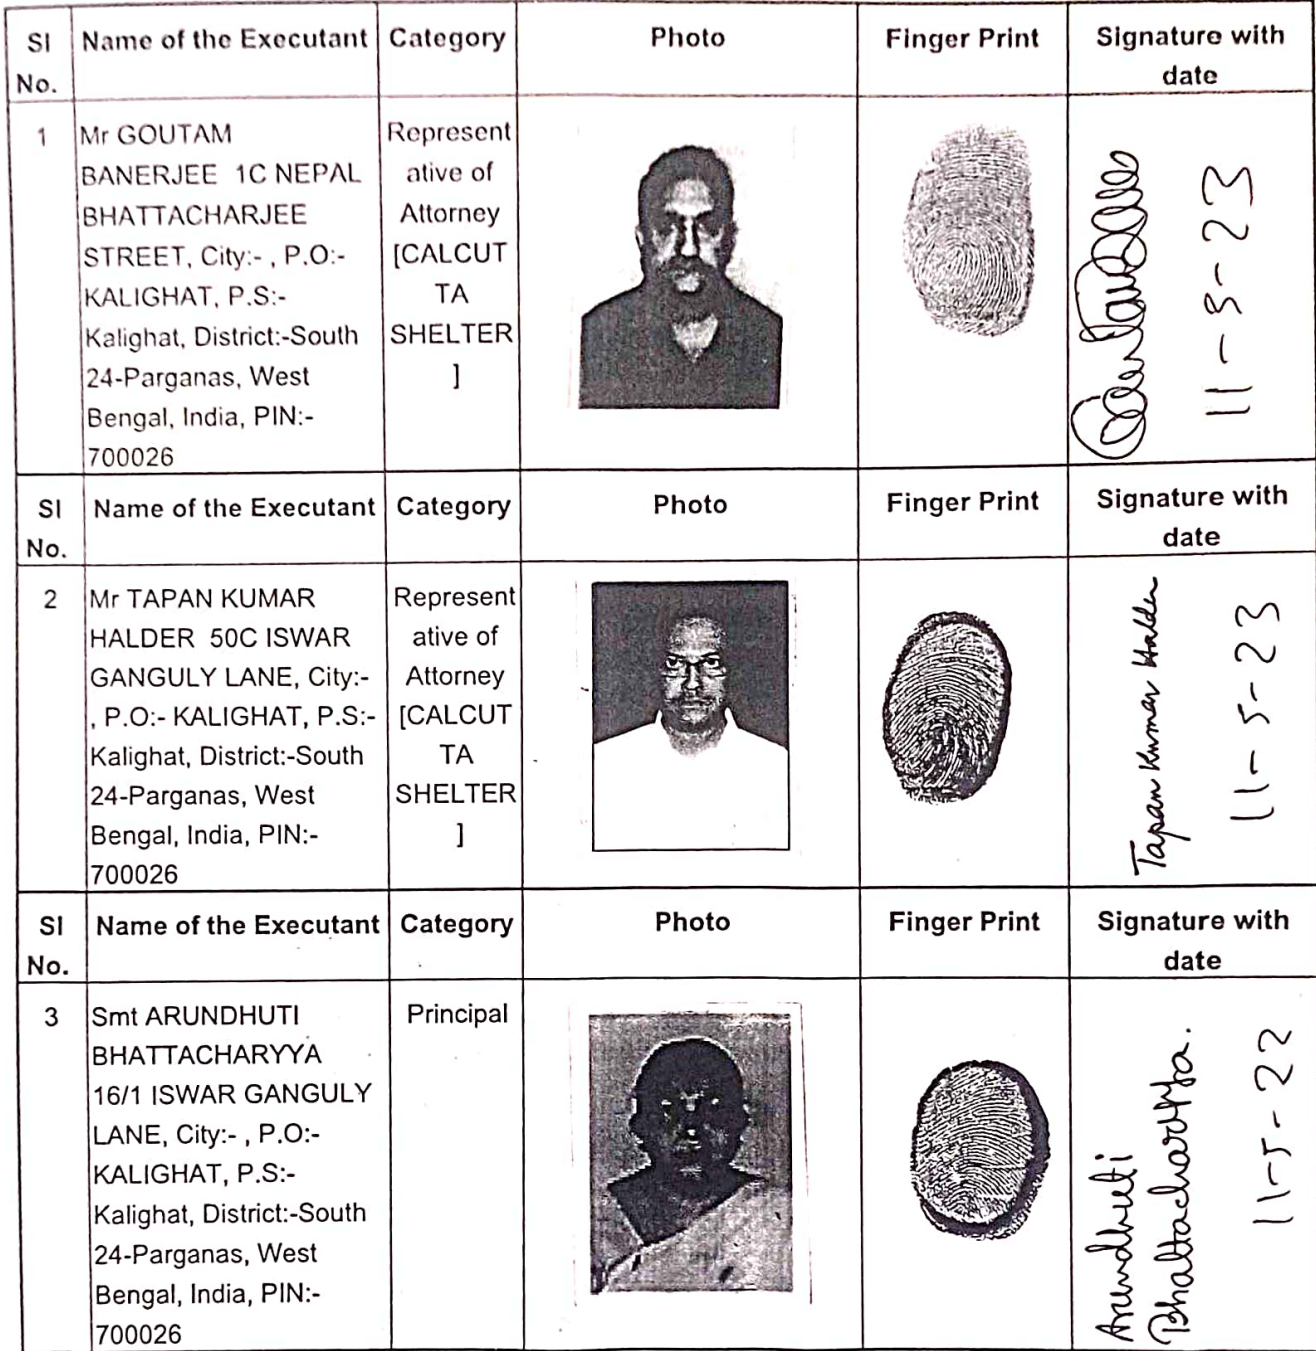 Sl No. Name of the Executant Category Photo Finger Print Signature with date
1
Mr GOUTAM
BANERJEE 1C NEPAL
BHATTACHARJEE
STREET, City:- , P.O:-
KALIGHAT, P.S:-
Kalighat, District:-South
24-Parganas, West
Bengal, India, PIN:-
700026
Represent
ative of
Attorney
[CALCUT
TA
SHELTER
]
11-5-23
Sl No. Name of the Executant Category Photo Finger Print Signature with date
2
Mr TAPAN KUMAR
HALDER 50C ISWAR
GANGULY LANE, City:-
, P.O:- KALIGHAT, P.S:-
Kalighat, District:-South
24-Parganas, West
Bengal, India, PIN:-
700026
Represent
ative of
Attorney
[CALCUT
TA
SHELTER
]
Tapan Kumar Halder
11-5-23
Sl No. Name of the Executant Category Photo Finger Print Signature with date
3
Smt ARUNDHUTI
BHATTACHARYYA
16/1 ISWAR GANGULY
LANE, City:- , P.O:-
KALIGHAT, P.S:-
Kalighat, District:-South
24-Parganas, West
Bengal, India, PIN:-
700026
Principal
Arundhuti
Bhattacharyya.
11-5-22